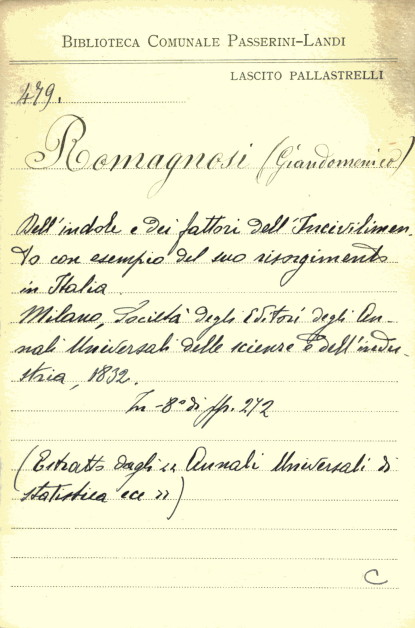 BIBLIOTECA COMUNALE PASSERINI-LANDI
LASCITO PALLASTRELLI
479.
Romagnosi (Giandomenico)
Dell'indole e dei fattori dell'Incivilimen-
to con esempio del suo risorgimento
in Italia.
Milano, Società degli Editori degli An-
nali Universali delle scienze e dell'indu-
stria, 1832.
In-8° di pp. 272
(Estratto dagli "Annali Universali di
statistica ecc")
C